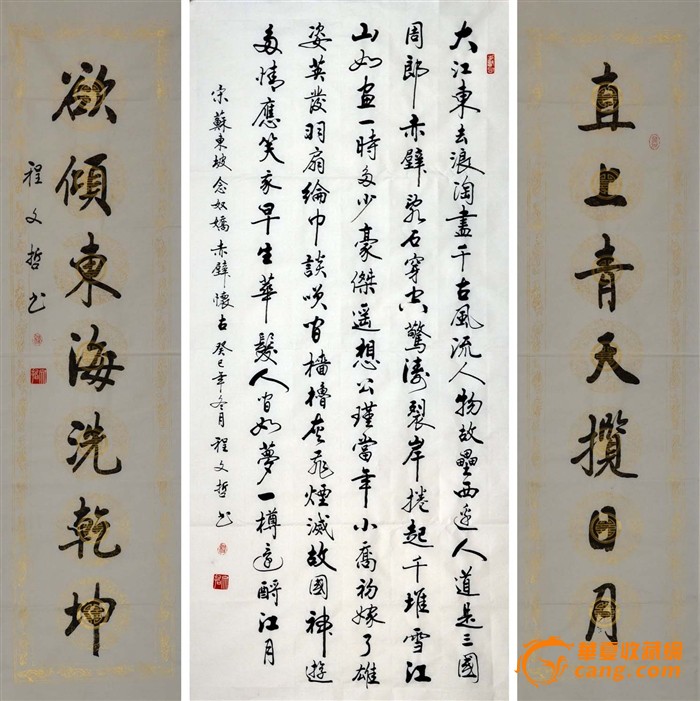 直上青天攬日月
大江東去浪淘盡千古風流人物故壘西邊人道是三國
周郎赤壁亂石穿空驚濤裂岸捲起千堆雪江
山如畫一時多少豪傑遥想公瑾當年小喬初嫁了雄
姿英發羽扇綸巾談笑間檣櫓灰飛煙滅故國神遊
多情應笑我早生華髮人間如夢一樽還酹江月
宋蘇東坡念奴嬌赤壁懷古 癸巳年冬月 程文哲书
欲傾東海洗乾坤
程文哲书
华夏收藏网
cang.com